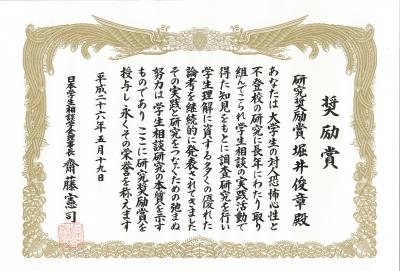 奨励賞
研究奨励賞 堀井俊章殿
あなたは大学生の対人恐怖心性と
不登校の研究に長年にわたり取り
組んでこられ学生相談の実践活動で
得た知見をもとに調査研究を行い
学生理解に資する多くの優れた
論考を継続的に発表されてきました
その実践と研究をつなぐための弛まぬ
努力は学生相談研究の本質を示す
ものであり ここに研究奨励賞を
授与し永くその栄誉を称えます
平成二十六年五月十九日
日本学生相談学会理事長 齋藤憲司